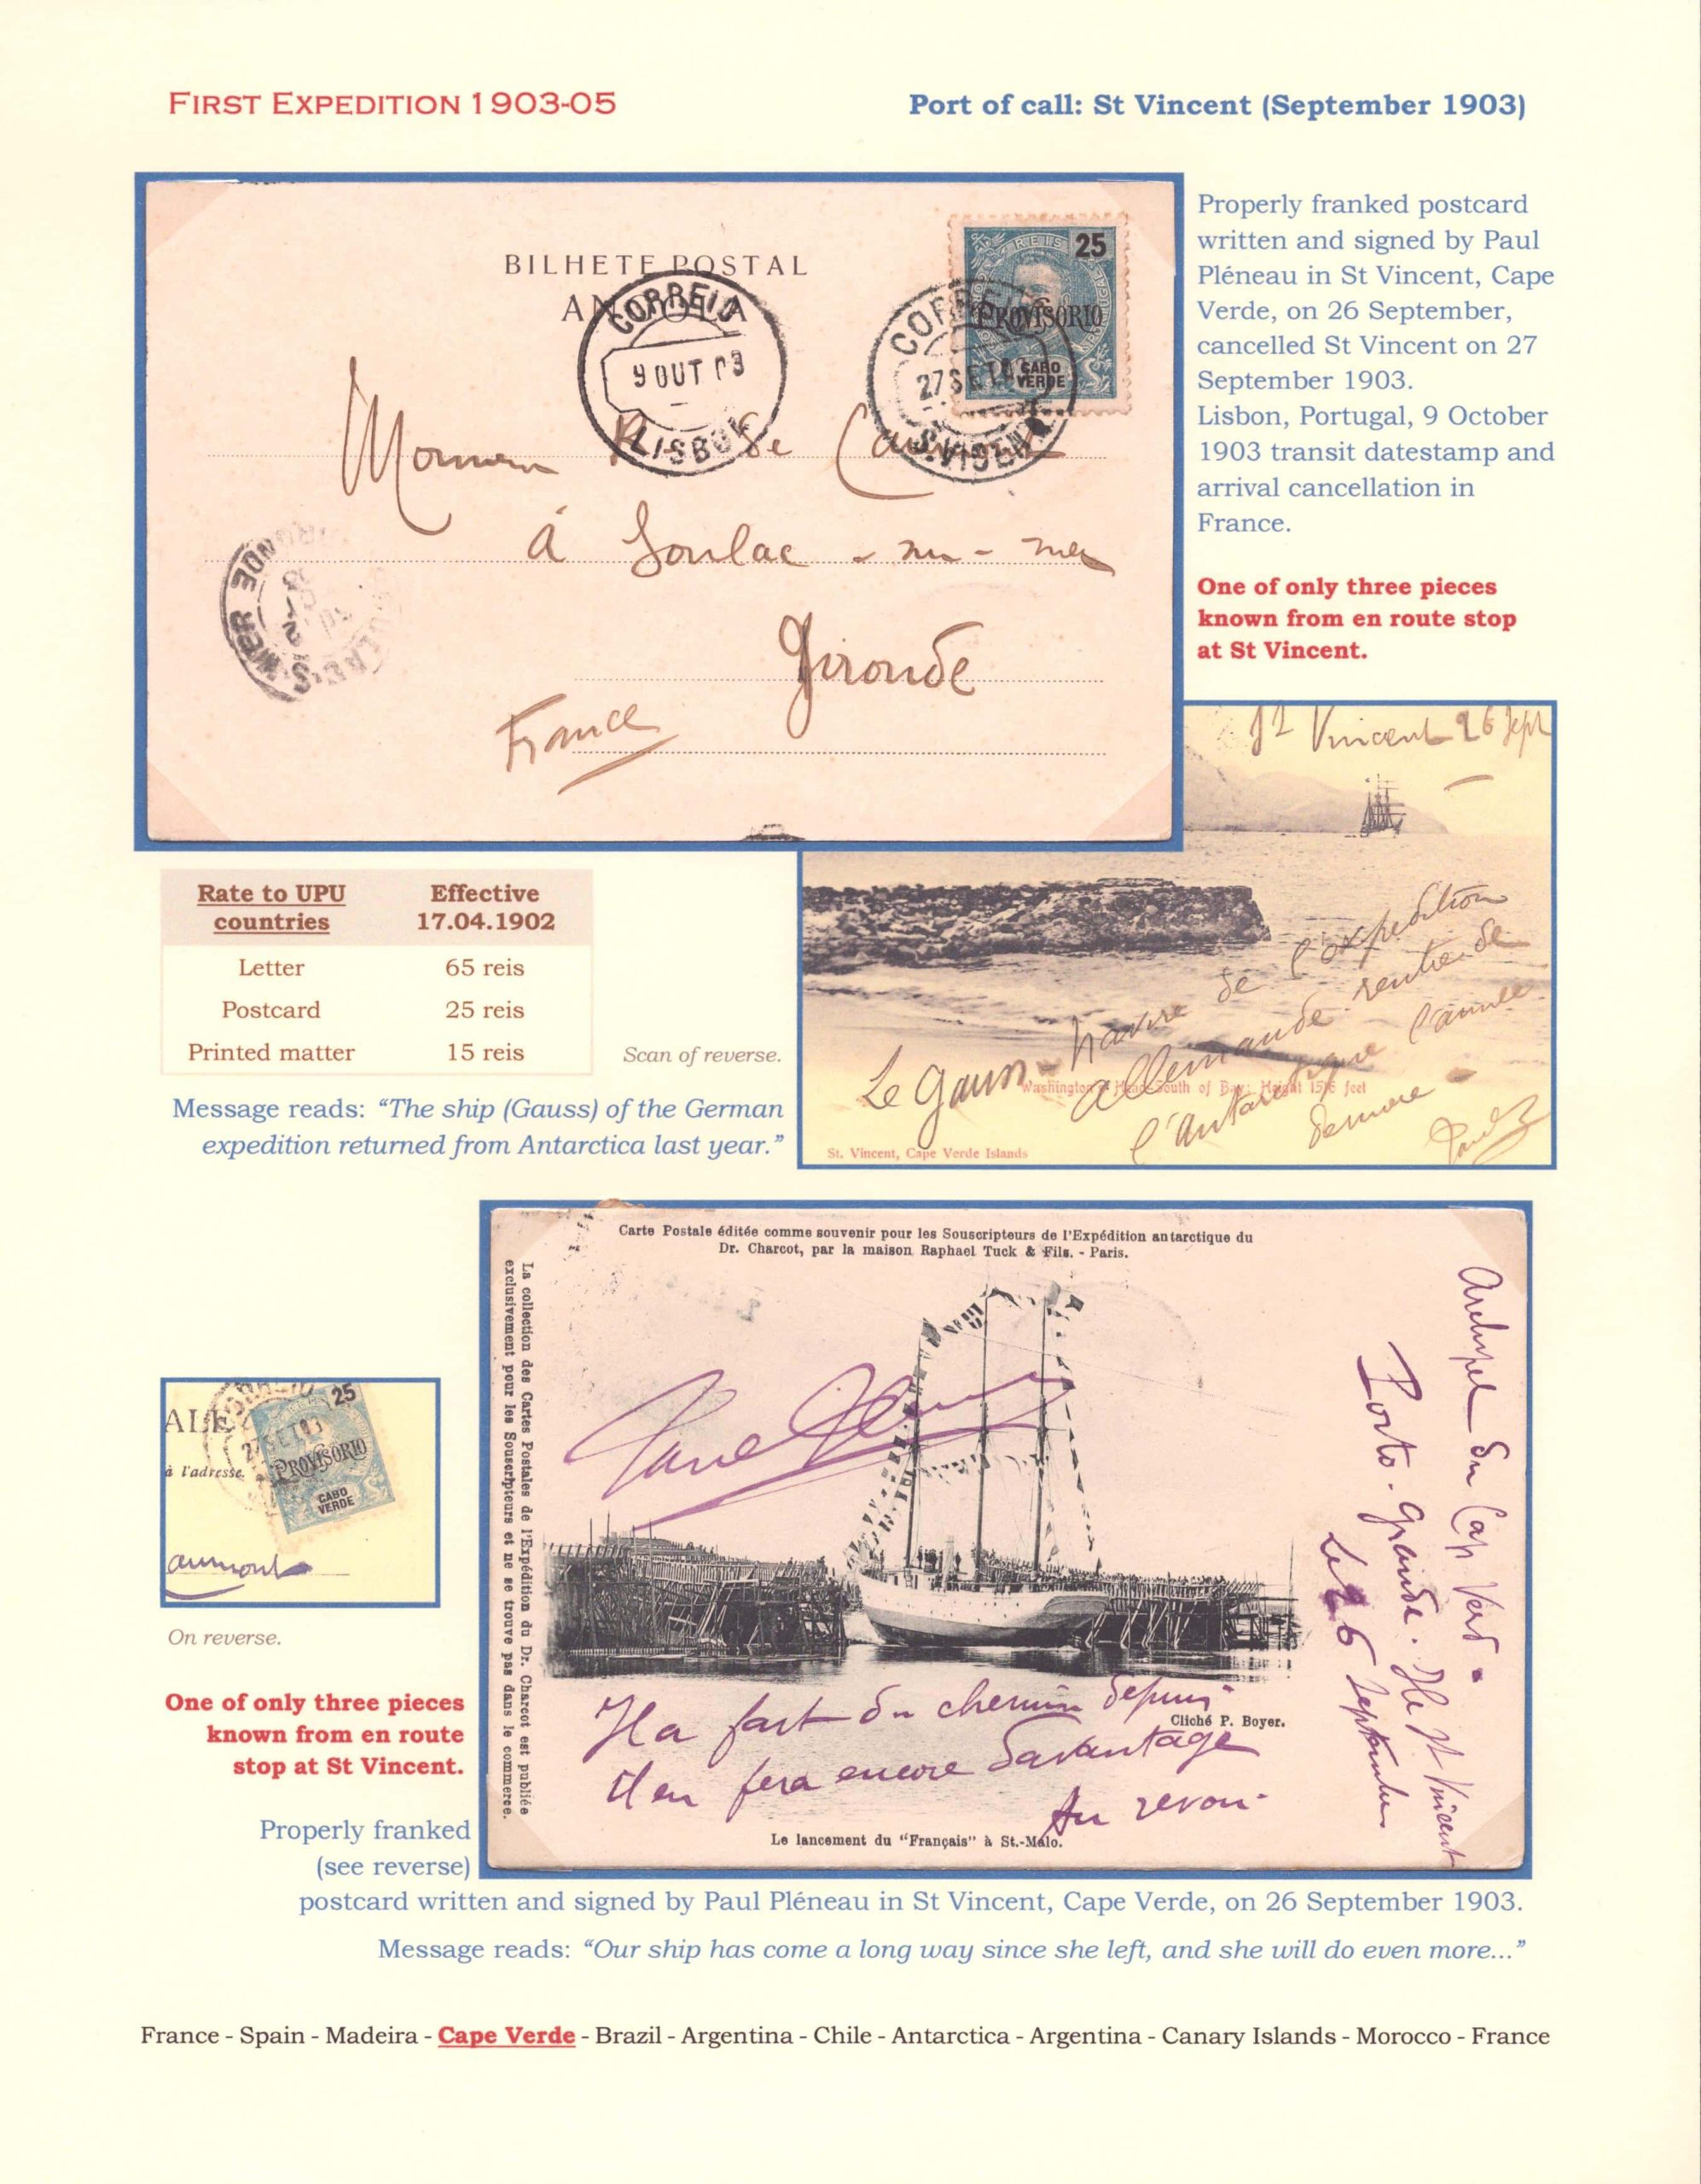 FIRST EXPEDITION 1903-05
Port of call: St Vincent (September 1903)
BILHETE POSTAL
CORREIO
9 OUT 03
LISBOA
25
REIS
PROVISORIO
CABO
VERDE
27 SET 03
S. VICENTE
Monsieur R. de
à Soulac-sur-mer
Gironde
France
Properly franked postcard
written and signed by Paul
Pléneau in St Vincent, Cape
Verde, on 26 September,
cancelled St Vincent on 27
September 1903.
Lisbon, Portugal, 9 October
1903 transit datestamp and
arrival cancellation in
France.
One of only three pieces
known from en route stop
at St Vincent.
St Vincent 26 Sept
Le Gauss - navire de l'expédition
allemande rentrée de
l'Antarctique l'année
dernière -
Washington's Head-South of Bay: Height 1516 feet
St. Vincent, Cape Verde Islands
Rate to UPU
countries
Effective
17.04.1902
Letter 65 reis
Postcard 25 reis
Printed matter 15 reis
Scan of reverse.
Message reads: “The ship (Gauss) of the German
expedition returned from Antarctica last year.”
Carte Postale éditée comme souvenir pour les Souscripteurs de l'Expédition antarctique du
Dr. Charcot, par la maison Raphael Tuck & Fils. - Paris.
La collection des Cartes Postales de l'Expédition du Dr. Charcot est publiée
exclusivement pour les Souscripteurs et ne se trouve pas dans le commerce.
Archipel du Cap Verd.
Porto-Grande. Ile St Vincent
Le 26 Septembre
Il a fait du chemin depuis
Cliché P. Boyer.
il en fera encore davantage
Au revoir
Le lancement du “Français” à St.-Malo.
ALE
25
27 SET 03
PROVISORIO
CABO
VERDE
à l'adresse.
aumont
On reverse.
One of only three pieces
known from en route
stop at St Vincent.
Properly franked
(see reverse)
postcard written and signed by Paul Pléneau in St Vincent, Cape Verde, on 26 September 1903.
Message reads: “Our ship has come a long way since she left, and she will do even more...”
France - Spain - Madeira - Cape Verde - Brazil - Argentina - Chile - Antarctica - Argentina - Canary Islands - Morocco - France